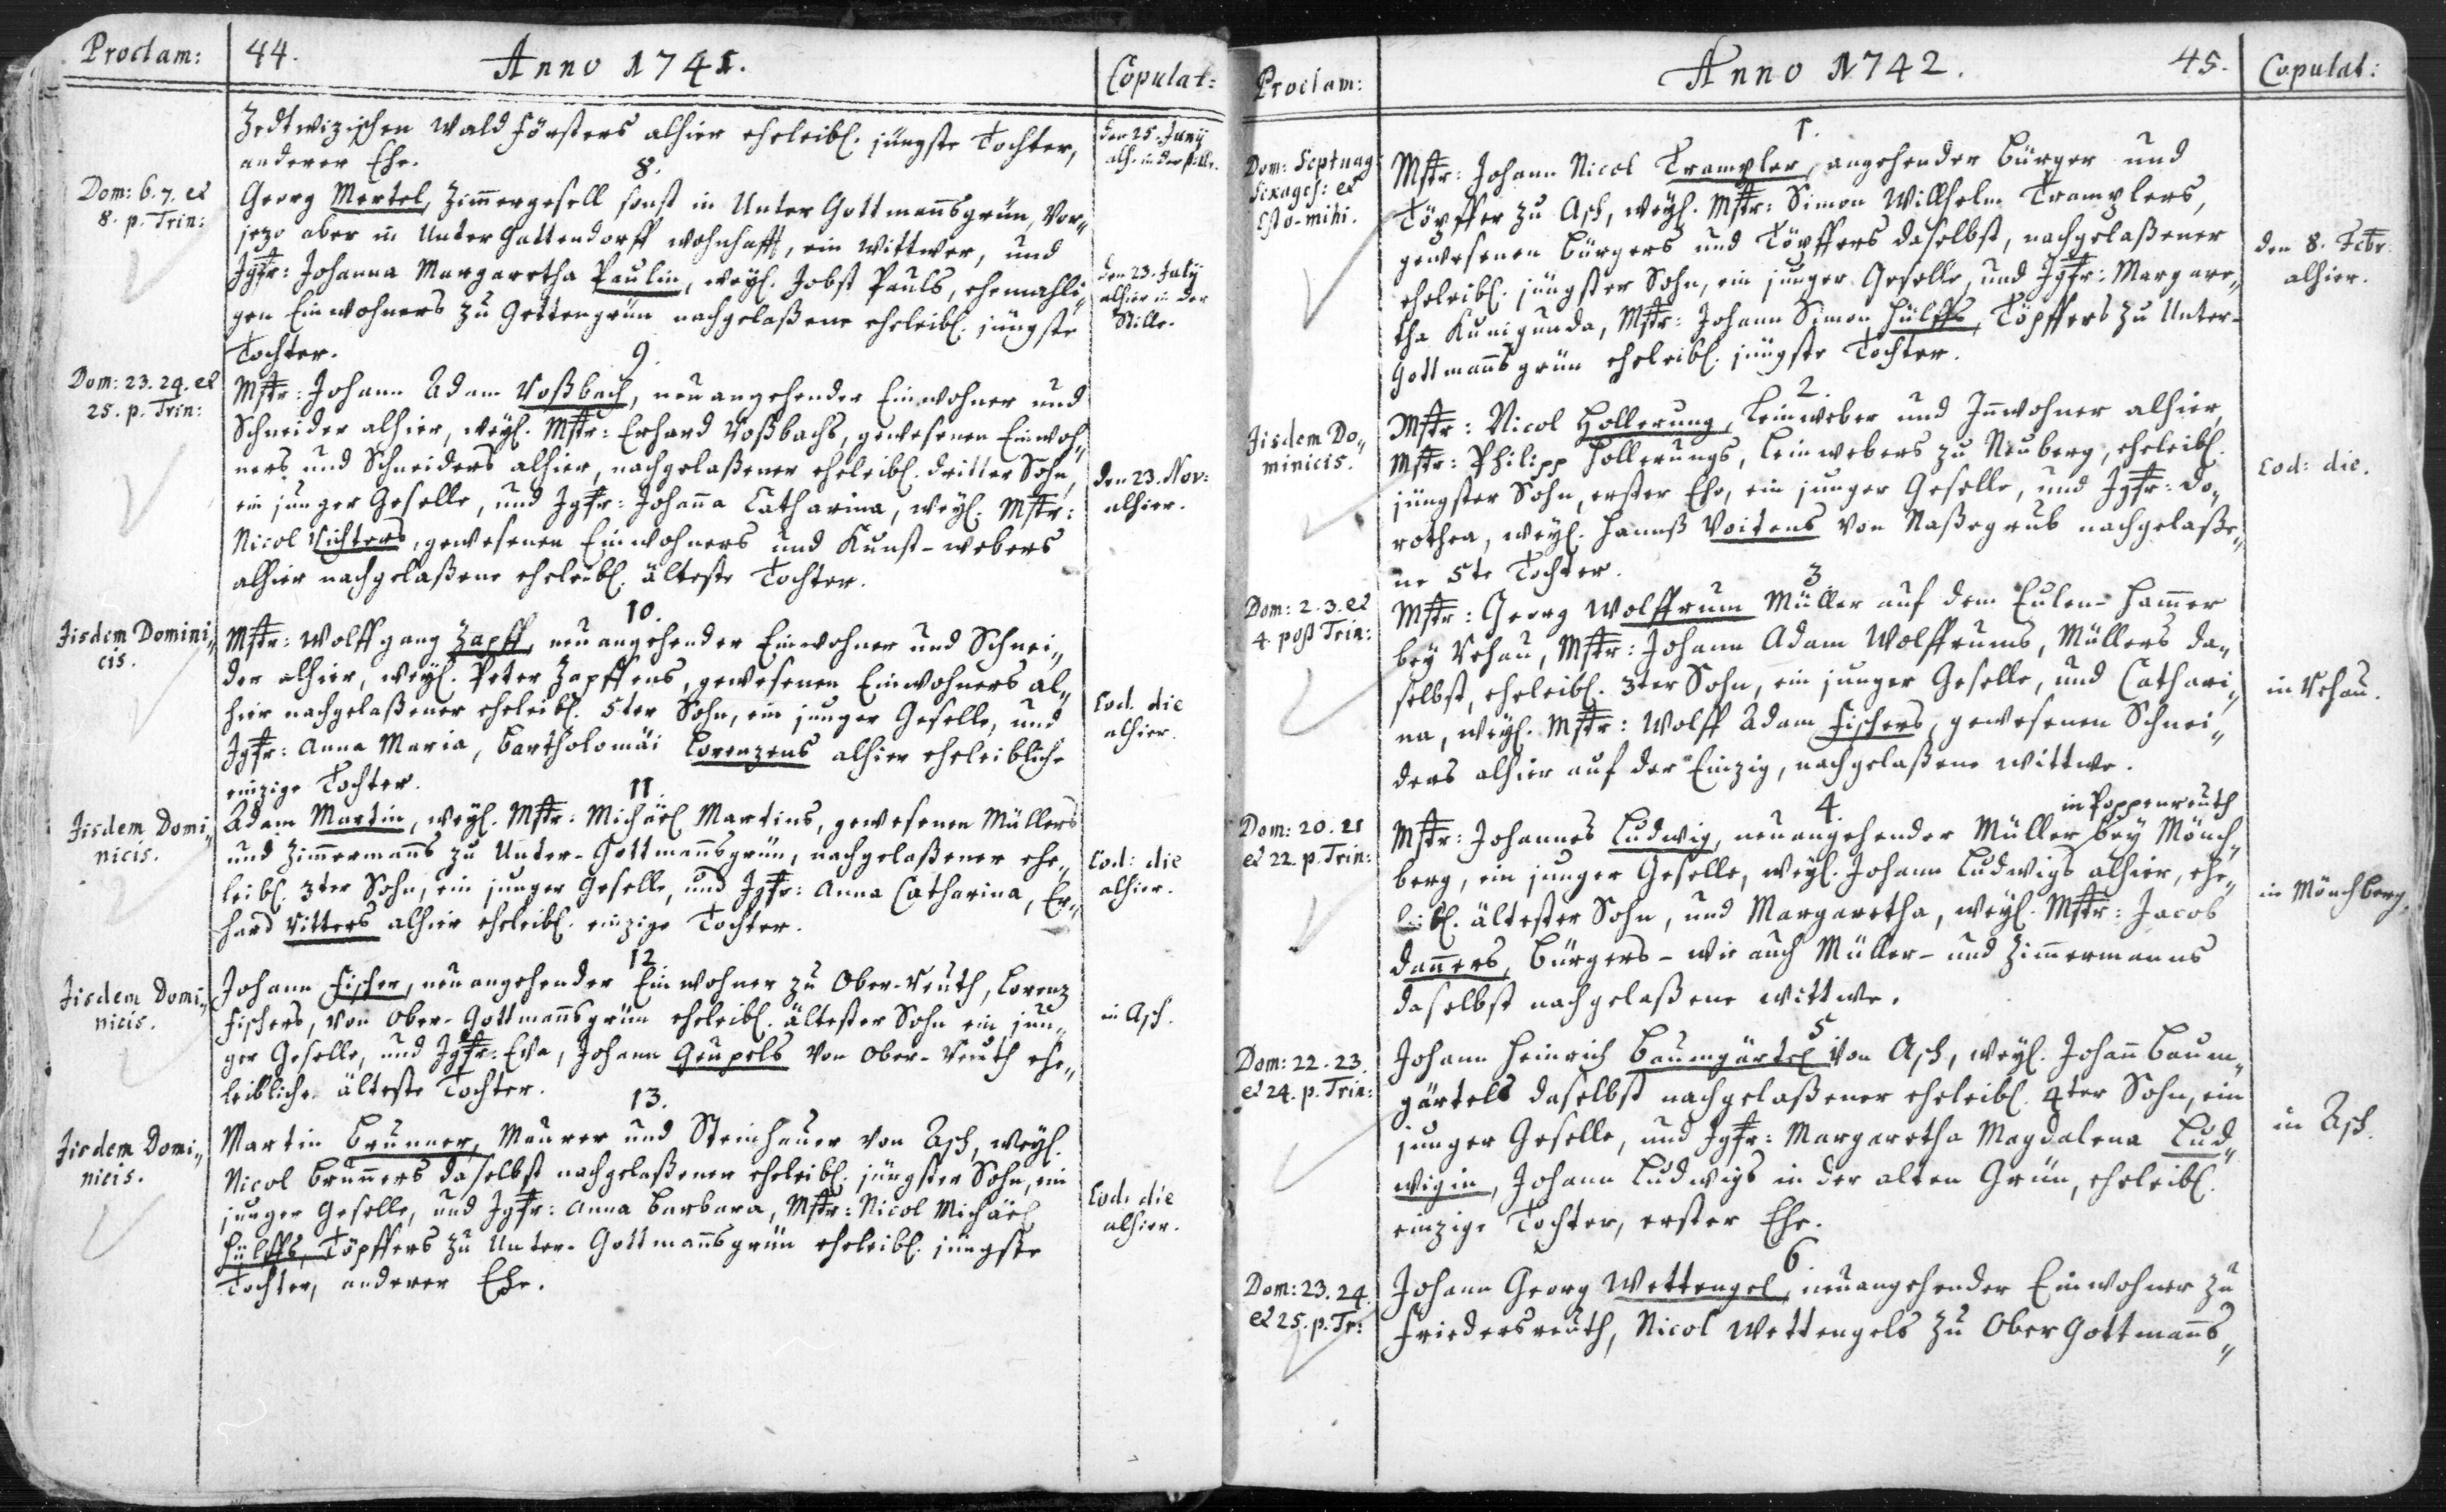 Proclam:
44.
Anno 1741.
Copulat:
Zedtwizischen Wald försters alhier eheleibl. jüngste Tochter,
anderer Ehe.
den 25. Juny
alh. in der stille.
8.
Dom: 6. 7. et
8. p. Trin:
Georg Mertel, Zimmergesell sonst in Unter Gottmannsgrün, vor„
jezo aber in Unter Gattendorff wohnhafft, ein Wittwer, und
Jgfr: Johanna Margaretha Paulin, weyl. Jobst Pauls, ehemahli„
gen Einwohners zu Gettengrün nachgelaßene eheleibl. jüngste
Tochter.
den 23. July
alhier in der
Stille.
9.
Dom: 23. 24. et
25. p. Trin:
Mstr: Johann Adam Voßbach, neu angehender Einwohner und
Schneider alhier, weyl. Mstr: Erhard Voßbachs, gewesenen Einwoh„
ners und Schneiders alhier, nachgelaßener eheleibl. dritter Sohn,
ein junger Geselle, und Jgfr: Johanna Catharina, weyl. Mstr:
Nicol Richters, gewesenen Einwohners und Kunst-webers
alhier nachgelaßene eheleibl. älteste Tochter.
den 23. Nov:
alhier.
10.
Jisdem Domini„
cis.
Mstr: Wolffgang Zapff, neu angehender Einwohner und Schnei„
der alhier, weyl. Peter Zapffens, gewesenen Einwohners al„
hier nachgelaßener eheleibl. 5ter Sohn, ein junger Geselle, und
Jgfr: Anna Maria, Bartholomäi Lorenzens alhier eheleibliche
einzige Tochter.
Eod. die
alhier.
11.
Jisdem Domi„
nicis.
Adam Martin, weyl. Mstr: Michäel Martins, gewesenen Müllers
und Zimmermanns zu Unter-Gottmannsgrün, nachgelaßener ehe„
leibl. 3ter Sohn, ein junger Geselle, und Jgfr: Anna Catharina, Er„
hard Ritters alhier eheleibl. einzige Tochter.
Eod: die
alhier.
12.
Jisdem Domi„
nicis.
Johann Fischer, neu angehender Einwohner zu Ober-Reuth, Lorenz
Fischers, von Ober-Gottmannsgrün eheleibl. ältester Sohn ein jun„
ger Geselle, und Jgfr: Eva, Johann Geupels von Ober-Reuth ehe„
leibliche älteste Tochter.
in Asch.
13.
Jisdem Domi„
nicis.
Martin Brunner, Maurer und Steinhauer von Asch, weyl.
Nicol Brunners daselbst nachgelaßener eheleibl. jüngster Sohn, ein
junger Geselle, und Jgfr: Anna Barbara, Mstr: Nicol Michäel
Hülffs, Töpffers zu Unter-Gottmannsgrün eheleibl. jüngste
Tochter, anderer Ehe.
Eod. die
alhier.
Proclam:
Anno 1742.
45.
Copulat:
1.
Dom: Septuag:
Sexages: et
Esto-mihi.
Mstr: Johann Nicol Trampler, angehender Bürger und
Töpffer zu Asch, weyl. Mstr: Simon Willhelm Tramplers,
gewesenen Bürgers und Töpffers daselbst, nachgelaßener
eheleibl. jüngster Sohn, ein junger Geselle, und Jgfr: Margare„
tha Kunigunda, Mstr: Johann Simon Hülffs, Töpffers zu Unter-
Gottmannsgrün eheleibl. jüngste Tochter.
den 8. Febr.
alhier.
2.
Jisdem Do„
minicis.
Mstr: Nicol Hollerung, Leinweber und Innwohner alhier,
Mstr: Philipp Hollerungs, Leinwebers zu Neuberg, eheleibl.
jüngster Sohn, erster Ehe, ein junger Geselle, und Jgfr: Do„
rothea, weyl. Hannß Voitens von Naßegrub nachgelaße„
ne 5te Tochter.
eod: die.
3.
Dom: 2. 3. et
4. post Trin:
Mstr: Georg Wolffrum Müller auf dem Eulen-Hammer
bey Rehau, Mstr: Johann Adam Wolffrums, Müllers da„
selbst, eheleibl. 3ter Sohn, ein junger Geselle, und Cathari„
na, weyl. Mstr: Wolff Adam Fischers, gewesenen Schnei„
ders alhier auf der Einzig, nachgelaßene Wittwe.
in Rehau.
4.
in Poppenreuth
Dom: 20. 21
et 22. p. Trin:
Mstr: Johannes Ludwig, neuangehender Müller bey Mönch„
berg, ein junger Geselle, weyl. Johann Ludwigs alhier, ehe„
leibl. ältester Sohn, und Margaretha, weyl. Mstr: Jacob
Danners, Bürgers- wie auch Müller- und Zimmermanns
daselbst nachgelaßene Wittwe.
in Mönchberg.
5
Dom: 22. 23.
et 24. p. Trin:
Johann Heinrich Baumgärtel von Asch, weyl. Johann Baum„
gärtels daselbst nachgelaßener eheleibl. 4ter Sohn, ein
junger Geselle, und Jgfr: Margaretha Magdalena Lud„
wigin, Johann Ludwigs in der alten Grün, eheleibl.
einzige Tochter, erster Ehe.
in Asch.
6
Dom: 23. 24.
et 25. p. Tr:
Johann Georg Wettengel, neuangehender Einwohner zu
Friedersreuth, Nicol Wettengels zu Ober Gottmanns„